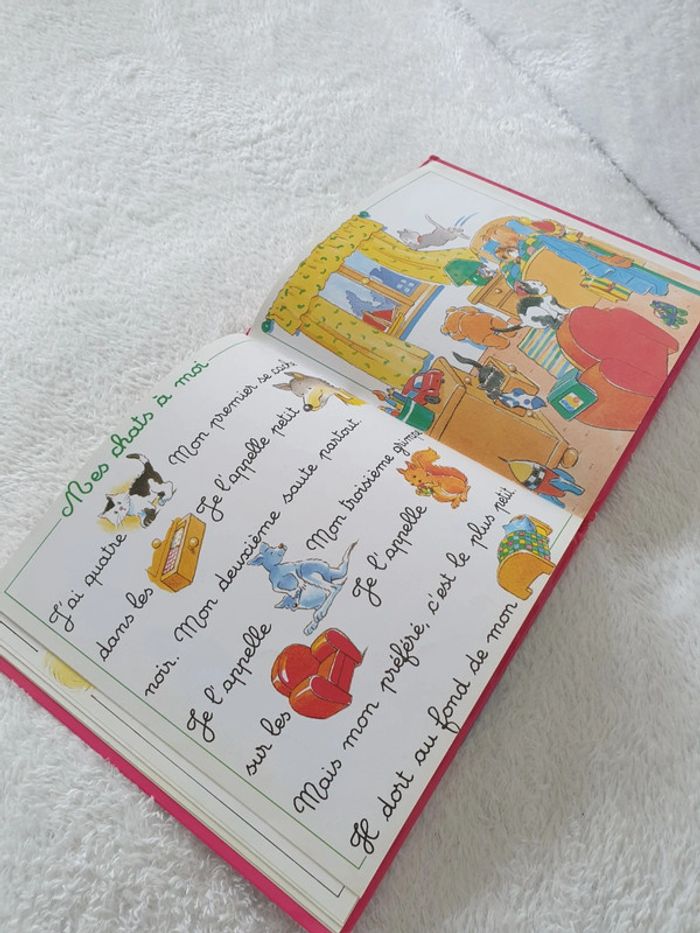 Mes chats à moi
J'ai quatre Mon premier se cache
dans les Je l'appelle petit
noir. Mon deuxième saute partout.
Je l'appelle Mon troisième grimpe
sur les Je l'appelle
Mais mon préféré, c'est le plus petit.
Il dort au fond de mon